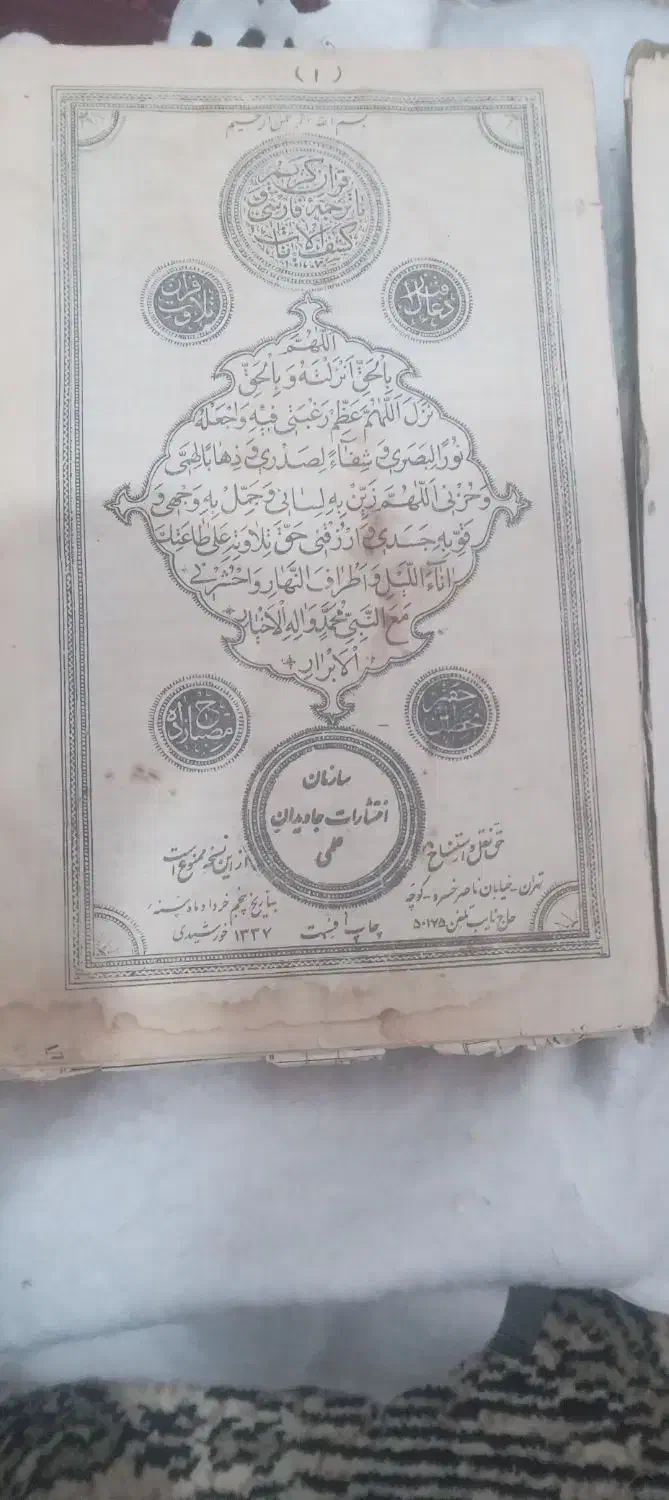 (۱)
بسم الله الرحمن الرحیم
قرآن کریم
با ترجمه فارسی و
کشف الآیات
دعای قبل از
تلاوت قرآن
اَللّٰهُمَّ
بِالْحَقِّ اَنْزَلْتَهُ وَ بِالْحَقِّ
نَزَلَ اَللّٰهُمَّ عَظِّمْ رَغْبَتی فیهِ وَاجْعَلْهُ
نُورًا لِبَصَری وَ شِفٰاءً لِصَدْری وَ ذِهٰابًا لِهَمّی
وَ حُزْنی اَللّٰهُمَّ زَیِّنْ بِهِ لِسانی وَ جَمِّلْ بِهِ وَجْهی وَ
قَوِّ بِهِ جَسَدی وَ ارْزُقْنی حَقَّ تِلاوَتِهِ عَلٰی طاعَتِكَ
اٰناءَ اللَّیْلِ وَ اَطْرافَ النَّهارِ وَ احْشُرْنی
مَعَ النَّبِیِّ مُحَمَّدٍ وَ اٰلِهِ الْاَخْیارِ
الْاَبْرارِ
سازمان
انتشارات جاویدان
علمی
حق نقل و استنساخ
از این نسخه ممنوع است
تهران - خیابان ناصر خسرو - کوچه
حاج نایب تلفن ۵۰۱۷۵
چاپ افست
بتاریخ پنجم خرداد ماه سنه
۱۳۳۷ خورشیدی